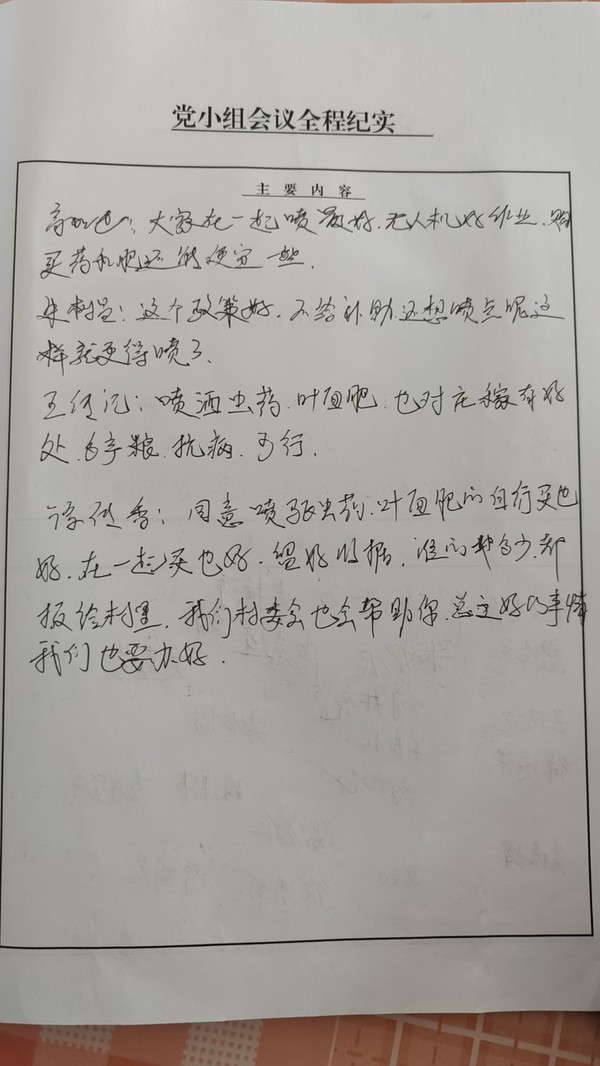 党小组会议全程纪实
主要内容
大家在一起喷最好.无人机好作业.购
买药和肥还能便宜一些.
这个政策好.不给补助还想喷点呢这
样就更得喷了.
喷洒虫药.叶面肥.也对庄稼有好
处.多产粮.抗病.可行.
同意喷驱虫药.叶面肥的自行买也
好.在一起买也好.留好收据.谁的都多少.都
报给村里.我们村委会也会帮助你.总之好的事情
我们也要办好.